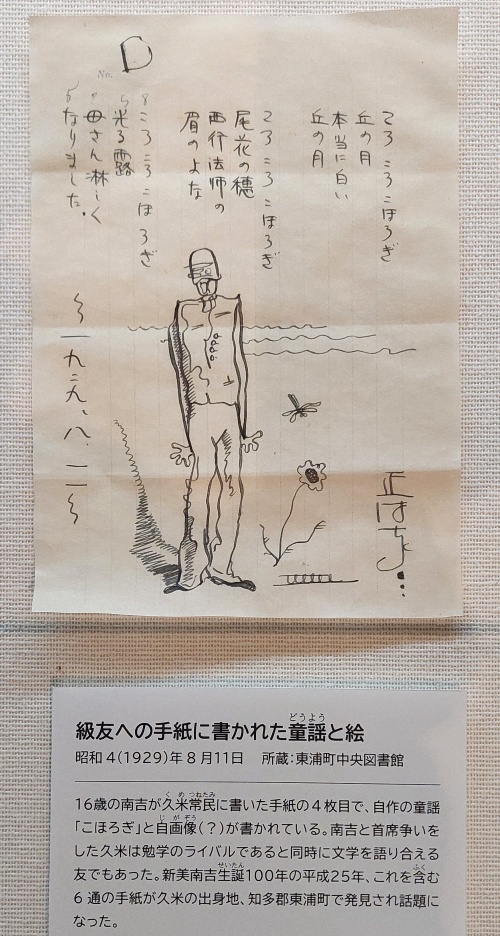 D
No.
ころ ころ こほろぎ
丘の月
本当に白い
丘の月
ころ ころ こほろぎ
尾花の穂
西行法師の
眉のよな
ころ ころ こほろぎ
光る露
母さん淋しく
なりました。
〜一九二九、八、一一〜
級友への手紙に書かれた童謡と絵
どうよう
昭和4(1929)年8月11日 所蔵:東浦町中央図書館
く め つねたみ
16歳の南吉が久米常民に書いた手紙の4枚目で、自作の童謡
じ が ぞう
「こほろぎ」と自画像(?)が書かれている。南吉と首席争いを
した久米は勉学のライバルであると同時に文学を語り合える
せいたん
ふく
友でもあった。新美南吉生誕100年の平成25年、これを含む
6通の手紙が久米の出身地、知多郡東浦町で発見され話題に
なった。